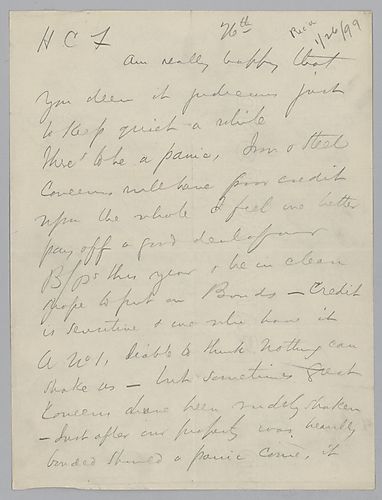 H C F 26th Rec'd 1/26/99
Am really happy that
you deem it judicious just
to keep quiet a while
There's to be a panic, Iron & Steel
Concerns will have poor credit
upon the whole I feel we better
pay off a good deal of our
B/ps this year & be in clean
shape to put on Bonds — Credit
is sensitive & we who have it
A No 1, liable to think nothing can
shake us — but sometimes great
Concerns have been rudely shaken
— Just after our property was heavily
bonded should a panic come, it